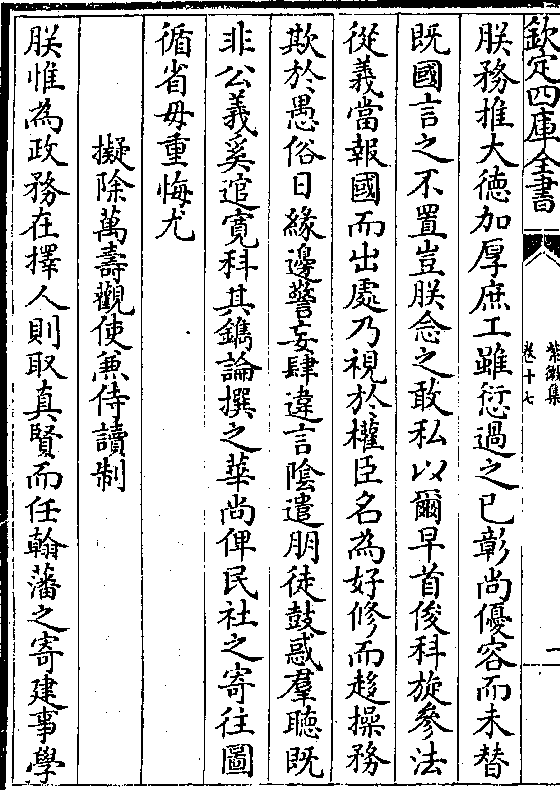 欽定四庫全書
紫微集
卷十七
朕務推大德加厚庶工雖愆過之已彰尚優容而未替
既國言之不置豈朕念之敢私以爾早首俊科旋參法
從義當報國而出處乃視於權臣名為好修而趍操務
欺於愚俗日緣邊警妄肆違言陰遣朋徒鼓惑羣聽既
非公義奚逭寛科其鐫論撰之華尚俾民社之寄往圖
循省毋重悔尤
擬除萬壽觀使兼侍讀制
朕惟為政務在擇人則取真賢而任翰藩之寄建事學